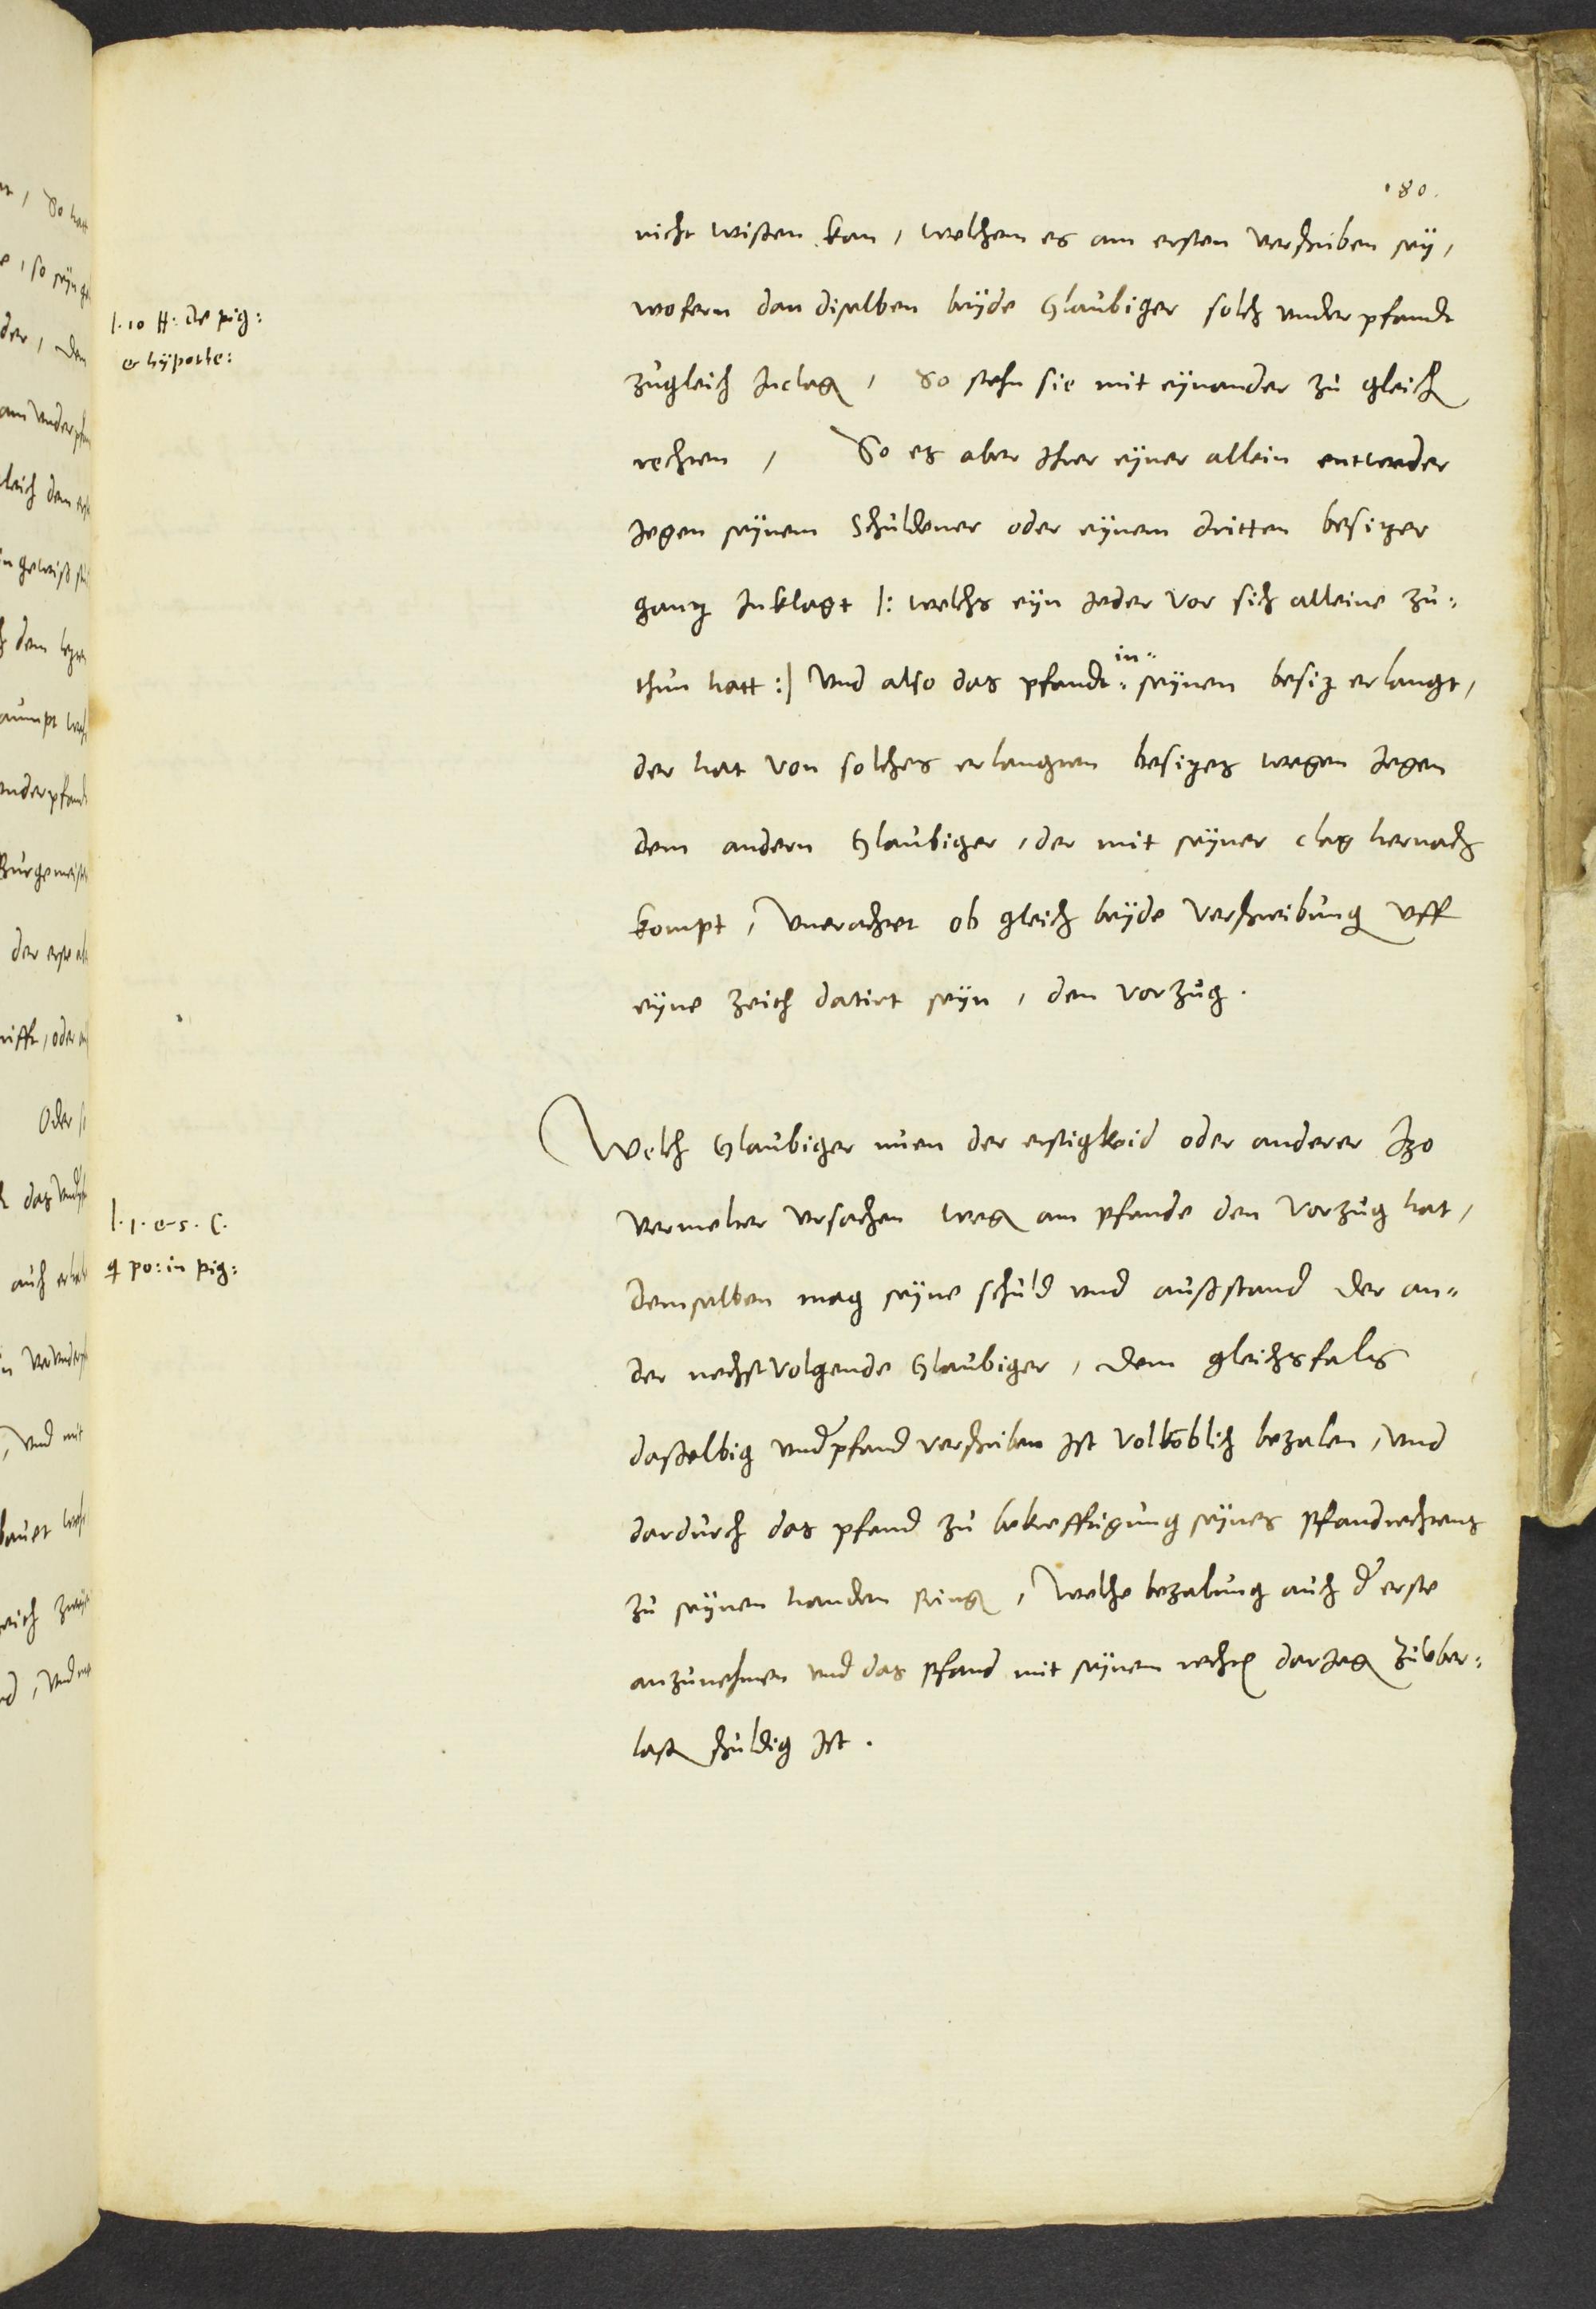 180.
nicht wißen kan, welchem es am ersten verschriben seÿ,
wofern dan diselben beÿde Glaubiger solch underpfandt
l. 10 ff: de pig:
& hÿpothe:
zugleich Inclagen, So stehn sie mit eÿnander zu gleichen
rechten, So es aber Ihrer eÿner allein entweder
Jegen seÿnem Schuldener oder eÿnem dritten besizer
ganz Inklagt |: welchs eÿn Jeder vor sich alleine zu:
thun hatt :| Und also das pfandt in seÿnen besiz erlangt,
der hat von solches erlangten besizes wegen Jegen
dem andern Glaubiger, der mit seÿner clag hernach
kompt, Unerachtet ob gleich beÿde verschreibung uff
eÿne zeith datirt seÿn, den vorzug.
Welch Glaubiger nuen der erstigkeid oder anderer Izo
l. 1. & 5. C.
q po: in pig:
vermelter ursachen wegen am pfande den vorzug hat,
demselben mag seÿne schuld und außstand der an=
der nechstvolgende Glaubiger, dem gleichsfals
daßelbig underpfand verschriben Ist volkoblich bezalen, und
dardurch das pfand zu bekrefftigung seÿnes Pfandrechtens
zu seÿnen handen bringen, Welche bezalung auch der erste
anzunehmen und das Pfand mit seÿnem rechten darJegen zuuber=
laßen schuldig Ist.